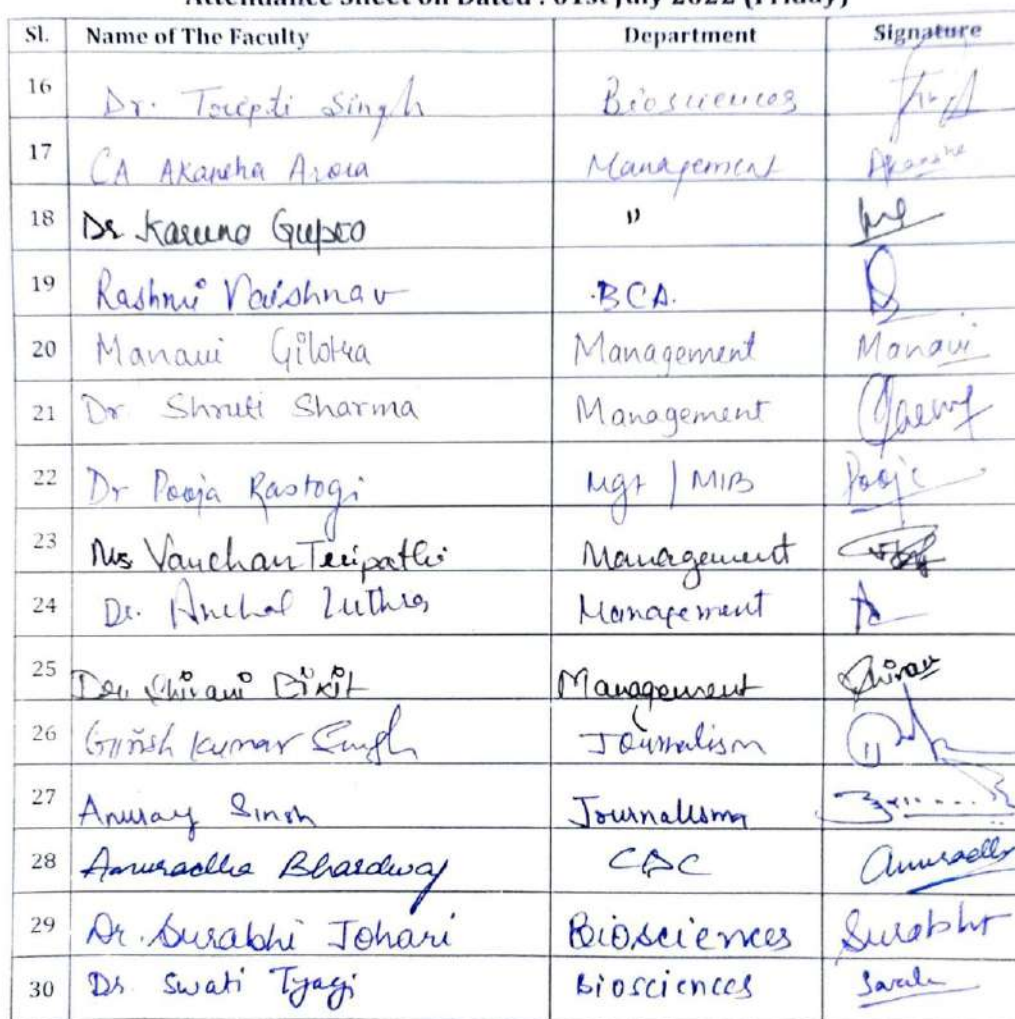 Attendance Sheet on Dated : 01st July 2022 (Friday)
Sl. Name of The Faculty Department Signature
16 Dr. Tripti Singh Biosciences
17 CA Akansha Arora Management
18 Dr Karuna Gupta "
19 Rashmi Vaishnav BCA.
20 Manavi Gilotra Management Manavi
21 Dr Shruti Sharma Management
22 Dr Pooja Rastogi Mgt | MIB Pooja
23 Ms. Vanchan Tripathi Management
24 Dr. Anchal Luthra Management
25 Shivani Dixit Management Shivani
26 Girish Kumar Singh Journalism
27 Anurag Singh Journalism
28 Anuradha Bhardwaj CDC Anuradha
29 Dr. Surabhi Johari Biosciences Surabhi
30 Dr. Swati Tyagi Biosciences